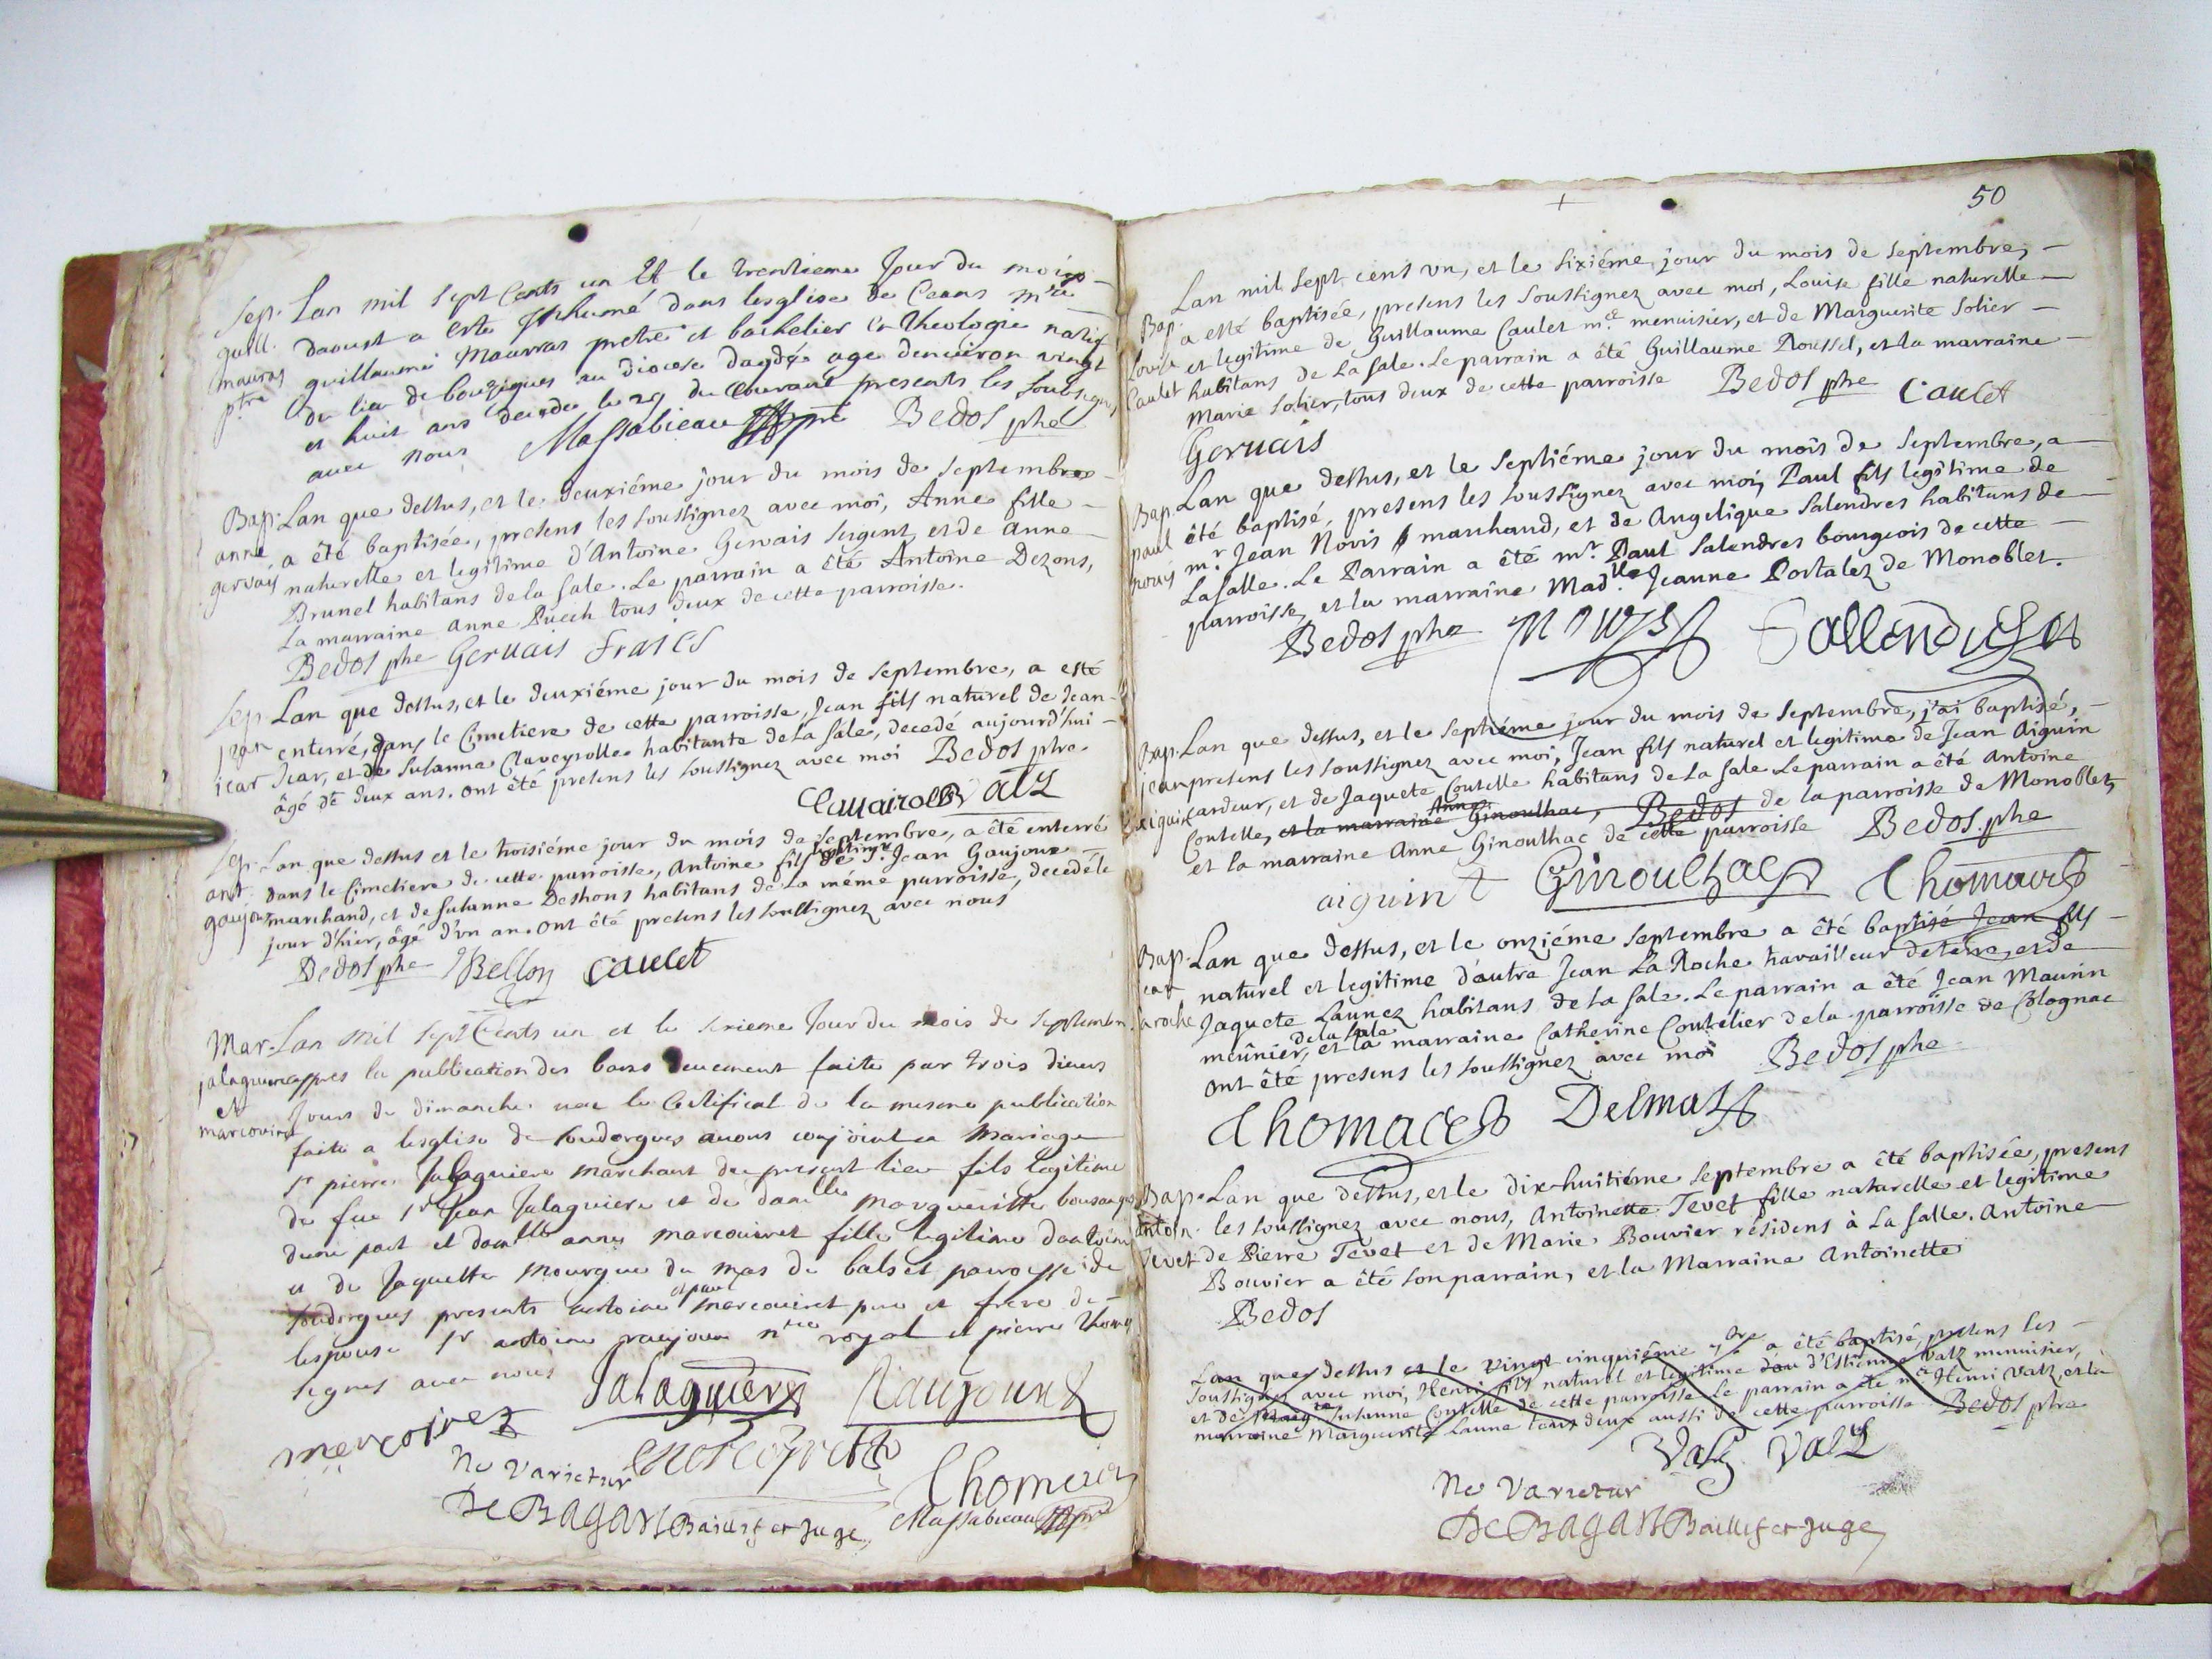 Sep. Lan mil sept Cents un Et le trentieme Jour du mois
guill. daoust a este Inhumé dans lesglise de Ceans mre
mauras guillaume Mauras pretre et bachelier en theologie natif
ptre du lieu de bouzigues au diocese dagde age denviron vingt
et huit ans decede le 29 du Courant presents les soubsignes
avec nous Massabieau ptre Bedos phe
Bap. Lan que dessus, et le deuxiéme jour du mois de septembre
anne a été baptisée, presens les soussignez avec moi, Anne fille
gervais naturelle et legitime d'Antoine Gervais sergent, et de Anne
Brunel habitans de la sale. Le parrain a été Antoine Dezons,
la marraine Anne Puech tous deux de cette parroisse.
Bedos phe Gervais
Sep. Lan que dessus, et le deuxiéme jour du mois de septembre, a esté
jean enterré, dans le Cimetiere de cette parroisse, Jean fils naturel de Jean
icar Icar, et de Susanne Claveyrolle habitante de la sale, decedé aujourd'hui
âgé de deux ans. ont été presens les soussignez avec moi Bedos phe
Valz
Sep. Lan que dessus et le troisiéme jour du mois de septembre, a été enterré
ant. dans le Cimetiere de cette parroisse, Antoine fils legitime de Sr. Jean Gaujoux
gaujoux marchand, et de Susanne Deshons habitans de la méme parroisse, decedé le
jour d'hier, âgé d'un an. ont été presens les soussignez avec nous
Bedos phe Bellon Caulet
Mar. Lan mil sept Cents un et le sixieme Jour du mois de septembre
jalaguiere appres la publication des bans deuement faite par trois divers
et Jours de dimanche veu le Certificat de la mesme publication
marcoiret faite a lesglise de soudorgues avons conjoint en Mariage
sr pierre Jalaguiere marchant du present lieu fils legitime
de feu sr Jean Jalaguiere et de damlle margueritte
dune part et damlle anne marcoiret fille legitime dantoine
et de Jaquette Mourgue du mas de balset parroisse de
soudorgues presents antoine et paul marcoiret pere et frere de
lespouse sr antoine raujoux nre royal et pierre Thomas
signes avec nous Jalaguiere Raujoux
mercoiret
Ne varietur Thomas
De Bagars Baillif et Juge Massabieau ptre
50
Lan mil sept cens un, et le sixiéme jour du mois de septembre,
Bap. a esté baptisée, presens les soussignez avec moi, Louise fille naturelle
Louise et legitime de Guillaume Caulet me. menuisier, et de Marguerite Solier
Caulet habitans de La sale. Le parrain a été Guillaume Roussel, et la marraine
Marie Solier, tous deux de cette parroisse Bedos phe Caulet
Gervais
Bap. Lan que dessus, et le septiéme jour du mois de septembre, a
paul été baptisé, presens les soussignez avec moi, Paul fils legitime de
novis mr. Jean Novis marchand, et de Angelique Salendres habitans de
La salle. Le Parrain a été mr. Paul Salendres bourgeois de cette
parroisse, et la marraine Madlle. Jeanne Portalez de Monoblet.
Bedos phe Novys Sallendres
Bap. Lan que dessus, et le septiéme jour du mois de septembre, j'ai baptisé,
jean presens les soussignez avec moi, Jean fils naturel et legitime de Jean Aiguin
aiguin cardeur, et de Jaquete Coutelle habitans de La sale Le parrain a été Antoine
Coutelle, et la marraine Anne Ginoulhac, Bedos de la parroisse de Monoblet,
et la marraine Anne Ginoulhac de cette parroisse Bedos phe
aiguin Ginoulhac Thomas
Bap. Lan que dessus, et le onziéme septembre a été baptisé Jean fils
jean naturel et legitime d'autre Jean La Roche travailleur de terre, et de
laroche Jaquete Launez habitans de la sale. Le parrain a été Jean Maurin
meûnier, de la sale et la marraine Catherine Coutelier de la parroisse de Colognac
ont été presens les soussignez avec moi Bedos phe
Thomas Delmas
Bap. Lan que dessus, et le dix-huitiéme septembre a été baptisée, presens
Antoin. les soussignez avec nous, Antoinette Tevet fille naturelle et legitime
Tevet de Pierre Tevet et de Marie Bouvier résidens à La salle. Antoine
Bouvier a été son parrain, et la Marraine Antoinette
Bedos
Lan que dessus et le vingt cinquiéme 7bre a été baptisé, presens les
soussignez avec moi, Henri fils naturel et legitime d'Estienne Valz menuisier,
et de Susanne Coutelle de cette parroisse Le parrain a été me Henri Valz, et la
marraine Marguerite Laune tous deux aussi de cette parroisse Bedos phe
Valz Valz
Ne Varietur
De Bagars Baillif et Juge